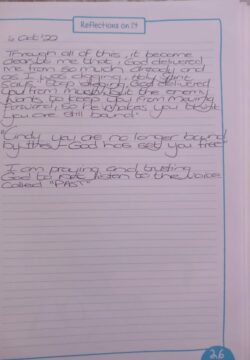 Reflections on 24
4 Oct '22
Through all of this, it became
clear to me that, God delivered
me from so much already and
as I was digging, Holy Spirit
says, "Stop digging, God delivered
you from much but the enemy
wants to keep you from moving
forward, so he makes you think
you are still bound."
"Cindy you are no longer bound
by this - God has set you free"
I am praying and trusting
God to not listen to the voice
called "PAS"
26